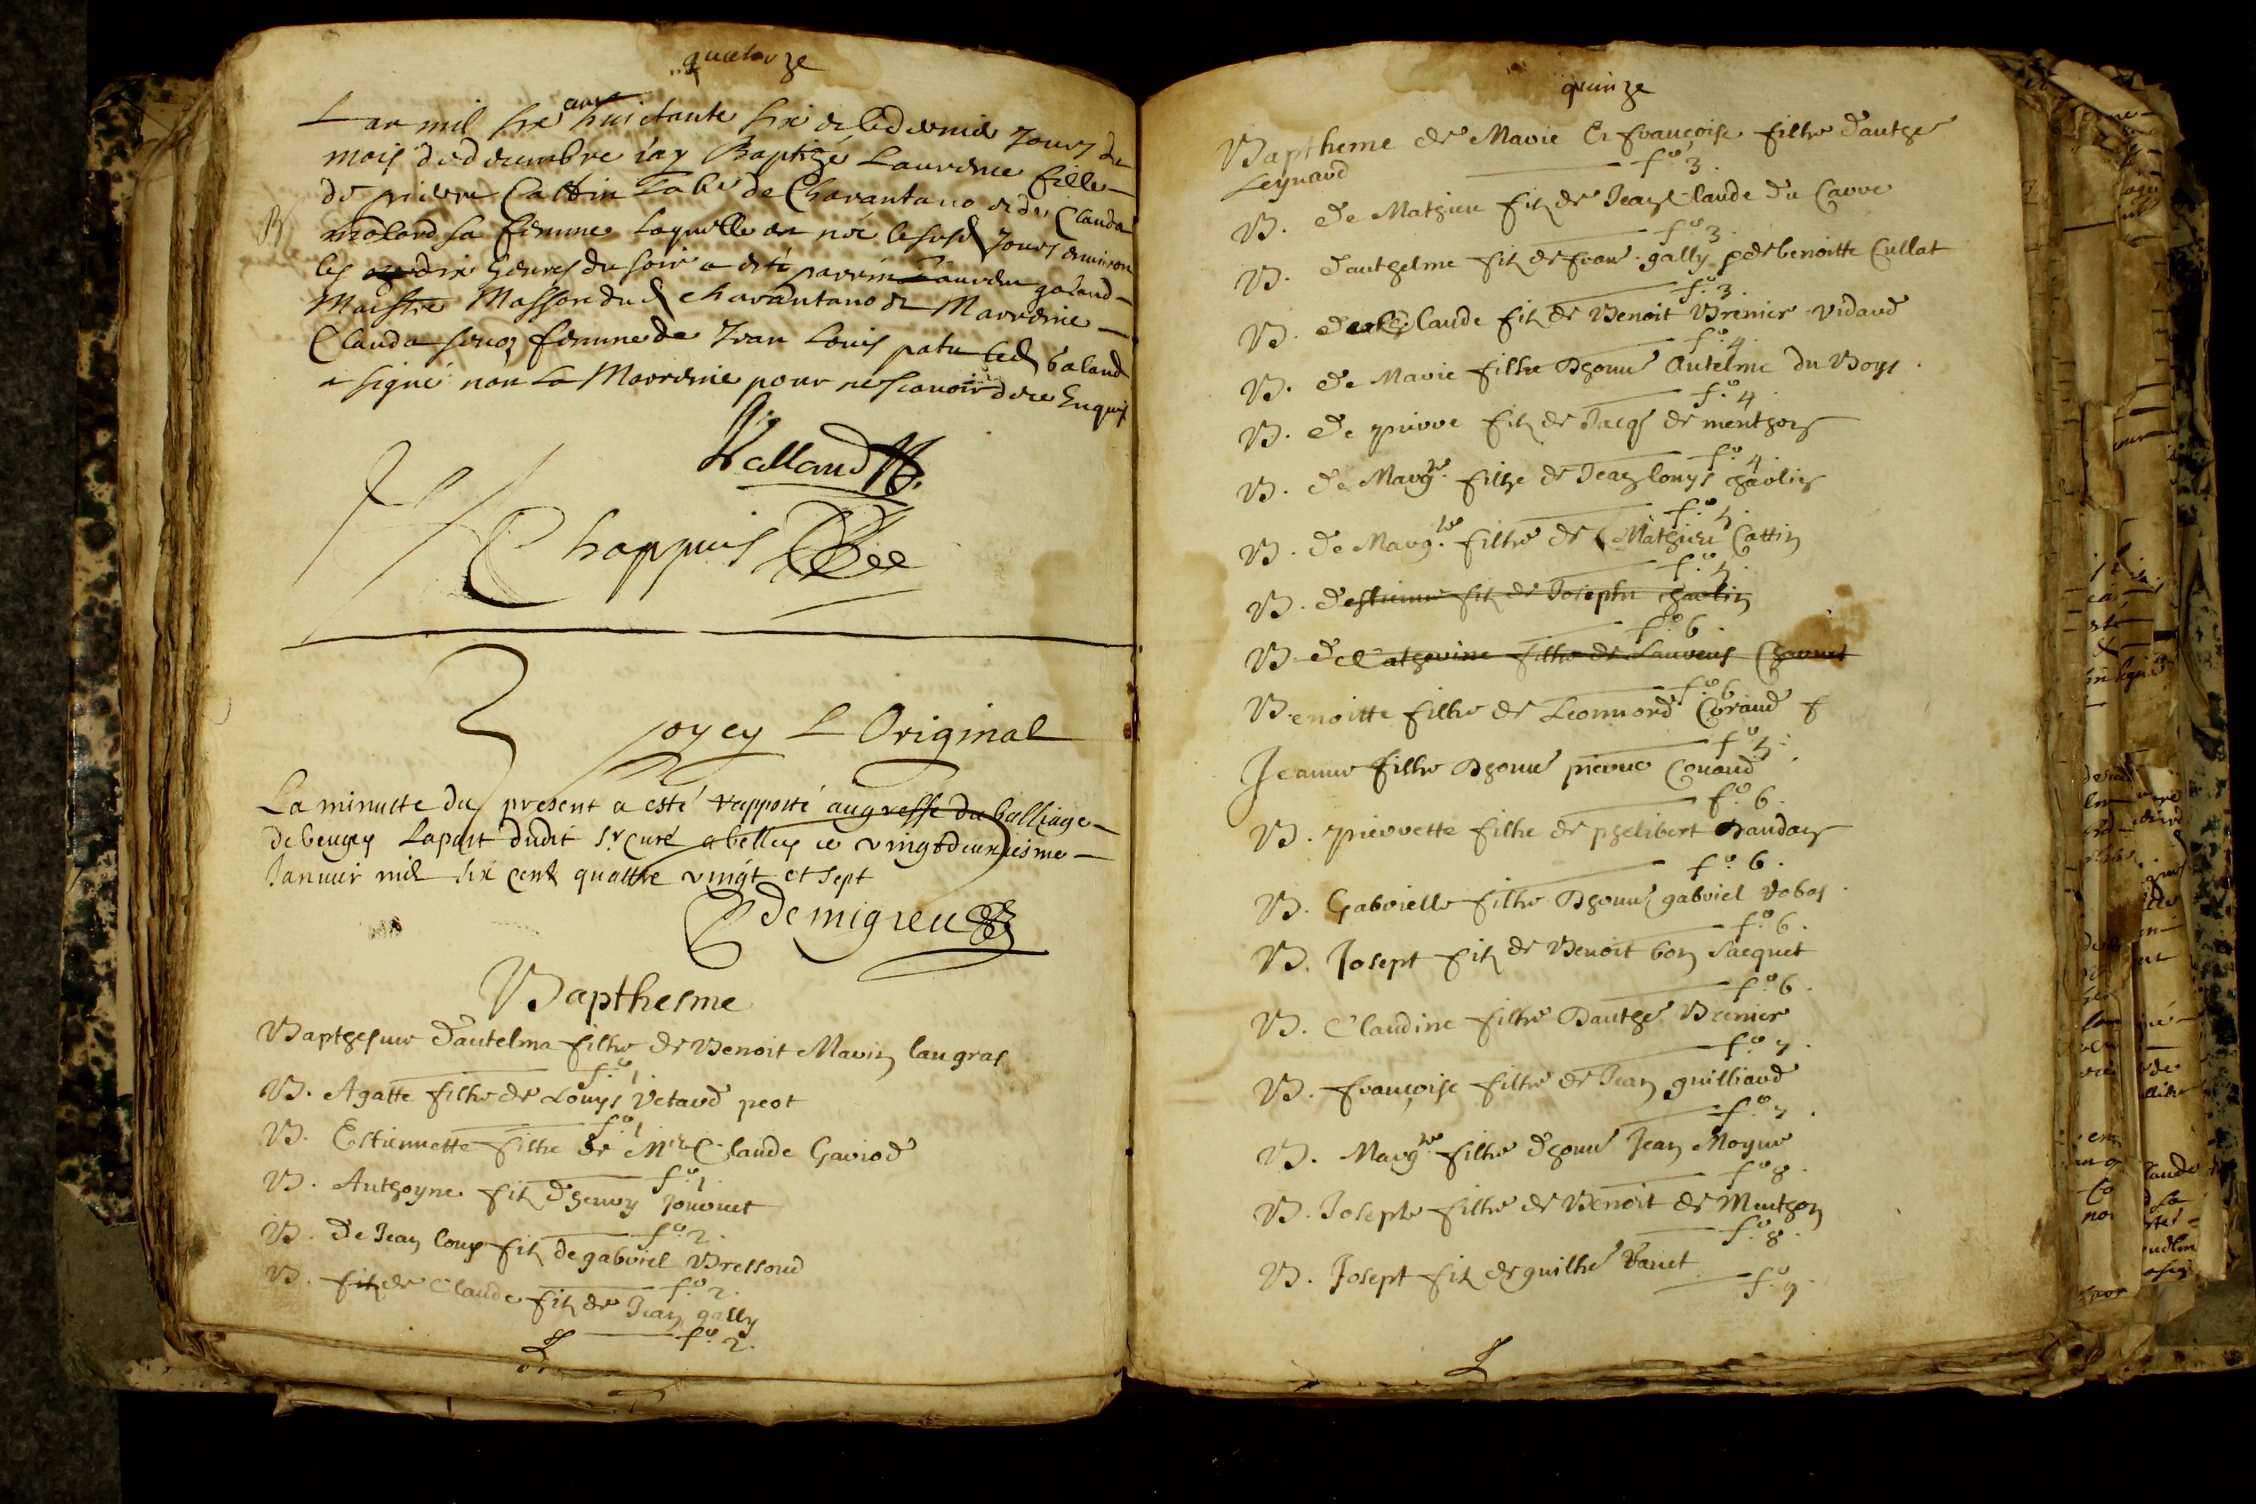 quatorze
Lan mil six cens huictante six et le dernier Jours du
mois de decembre iay Baptizé Laurence fille
de pierre Cattin Labr de Charantano et de Clauda
molard sa femme laquelle est née le susd Jours environ
les dix heures du soir a esté parrin Laurens galand
Maistre Masson dud Charantano et Marreine
Clauda femme de Jean Louis patu led Galand
a signé non La Marreine pour ne scavoir de ce Enquis
B
Galland
Chappuis
soy ey L Original
La minutte du present a esté rapporté au greffe du balliage
de beugey La part dudit Sr Curé a belley ce vingt deuxiesme
Januier mil six cent quattre vingt et sept
Demigieu
Bapthesme
Bapthesme d'antelma filhe de Benoit Marin lau gras
fo 1
B. Agatte filhe de Louys Vetard peot
fo 1
B. Estiennette filhe de Mre Claude Gariod
fo 1.
B. Anthoyne filz d'henry Jouvnet
fo 2.
B. de Jean louys filz de gabriel Bressoud
fo 2.
B. filz de Claude filz de Jean gally
fo 2.
quinze
Baptheme de Marie Et françoise filhe d'anthe
Leynard
fo 3.
B. de Mathieu filz de Jean Claude du Carre
fo 3.
B. d'anthelme filz de fran. gally p de benoitte Cullat
fo 3.
B. de Claude filz de Benoit Brenier Vidard
fo 4.
B. de Marie filhe Dhonn Antelme du Boys.
fo 4.
B. de pierre filz de Jacqs de menthon
fo 4.
B. de Margte filhe de Jean louys charlin
fo 5.
B. de Margte filhe de Mathieu Cattin
fo 5.
B. d'estienne filz de Josephe charlin
fo 6.
B. de Catherine filhe de Laurens Charvet
fo 6
Benoitte filhe de Leonnord Coraud f
fo 5.
Jeanne filhe Dhonn pierre Conand
fo 6.
B. pierrette filhe de phelibert
fo 6.
B. Gabrielle filhe Dhonn gabriel
fo 6.
B. Josept filz de Benoit bon Jacquet
fo 6.
B. Claudine filhe Danthe Brenier
fo 7.
B. françoise filhe de Jean guilliard
fo 7.
B. Margte filhe dhonn Jean Moyne
fo 8.
B. Josepte filhe de Benoit de Menthon
fo 8.
B. Josept filz de guilhe
fo 9.